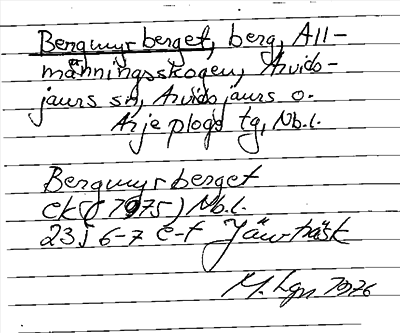 Bergmyrberget, berg, All-
männingsskogen, Arvids-
jaurs sn, Arvidsjaurs o.
Arjeplogs tg, Nb.l.
Bergmyrberget
ek (1975) Nb.l.
23J 6-7 e-f Järvträsk
M. Lgn 1976